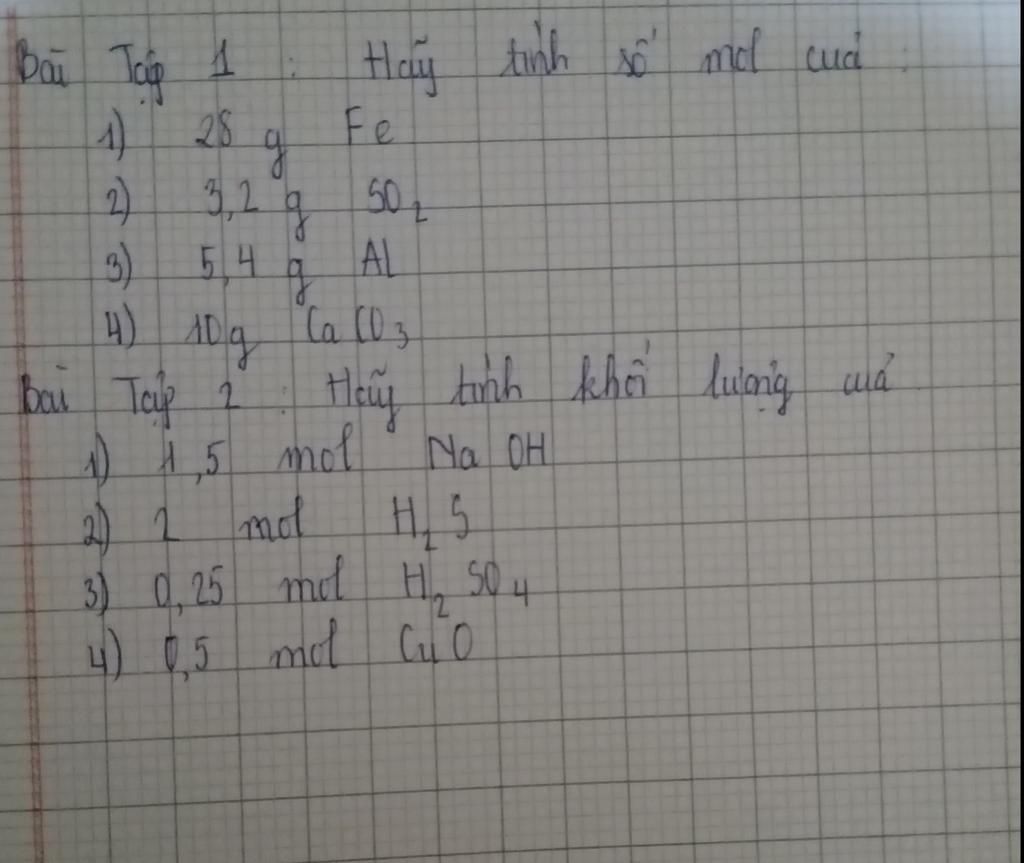 Bài Tập 1 : Hãy tính số mol của :
1) 28 g Fe
2) 3,2 g SO₂
3) 5,4 g Al
4) 10g CaCO₃
Bài Tập 2 : Hãy tính khối lượng của
1) 1,5 mol NaOH
2) 2 mol H₂S
3) 0,25 mol H₂SO₄
4) 0,5 mol CuO